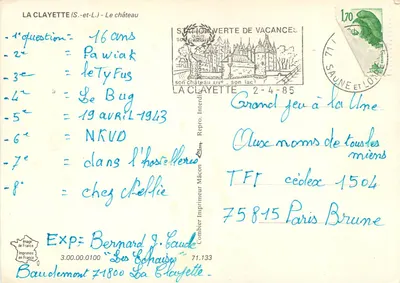 LA CLAYETTE (S.-et-L.) - Le château
-1e question = 16 ans
-2e = Pawiak
-3e = le Tyfus
-4e = Le Bug
-5e = 19 avril 1943
-6e = NKVD
-7e = dans l'hostellerie
-8e = chez Nellie
Exp = Bernard J. Claude
"Les Echaises"
Baudemont 71800 La Clayette.
3.00.00.0100
71.133
Combier Imprimeur Mâcon
STATION VERTE DE VACANCES
son château XIVe son lac
LA CLAYETTE 2-4-85
1,70
71 SAONE et LOIRE
Grand jeu à la Une
Aux noms de tous les
miens
TF1 cédex 1504
75815 Paris Brune